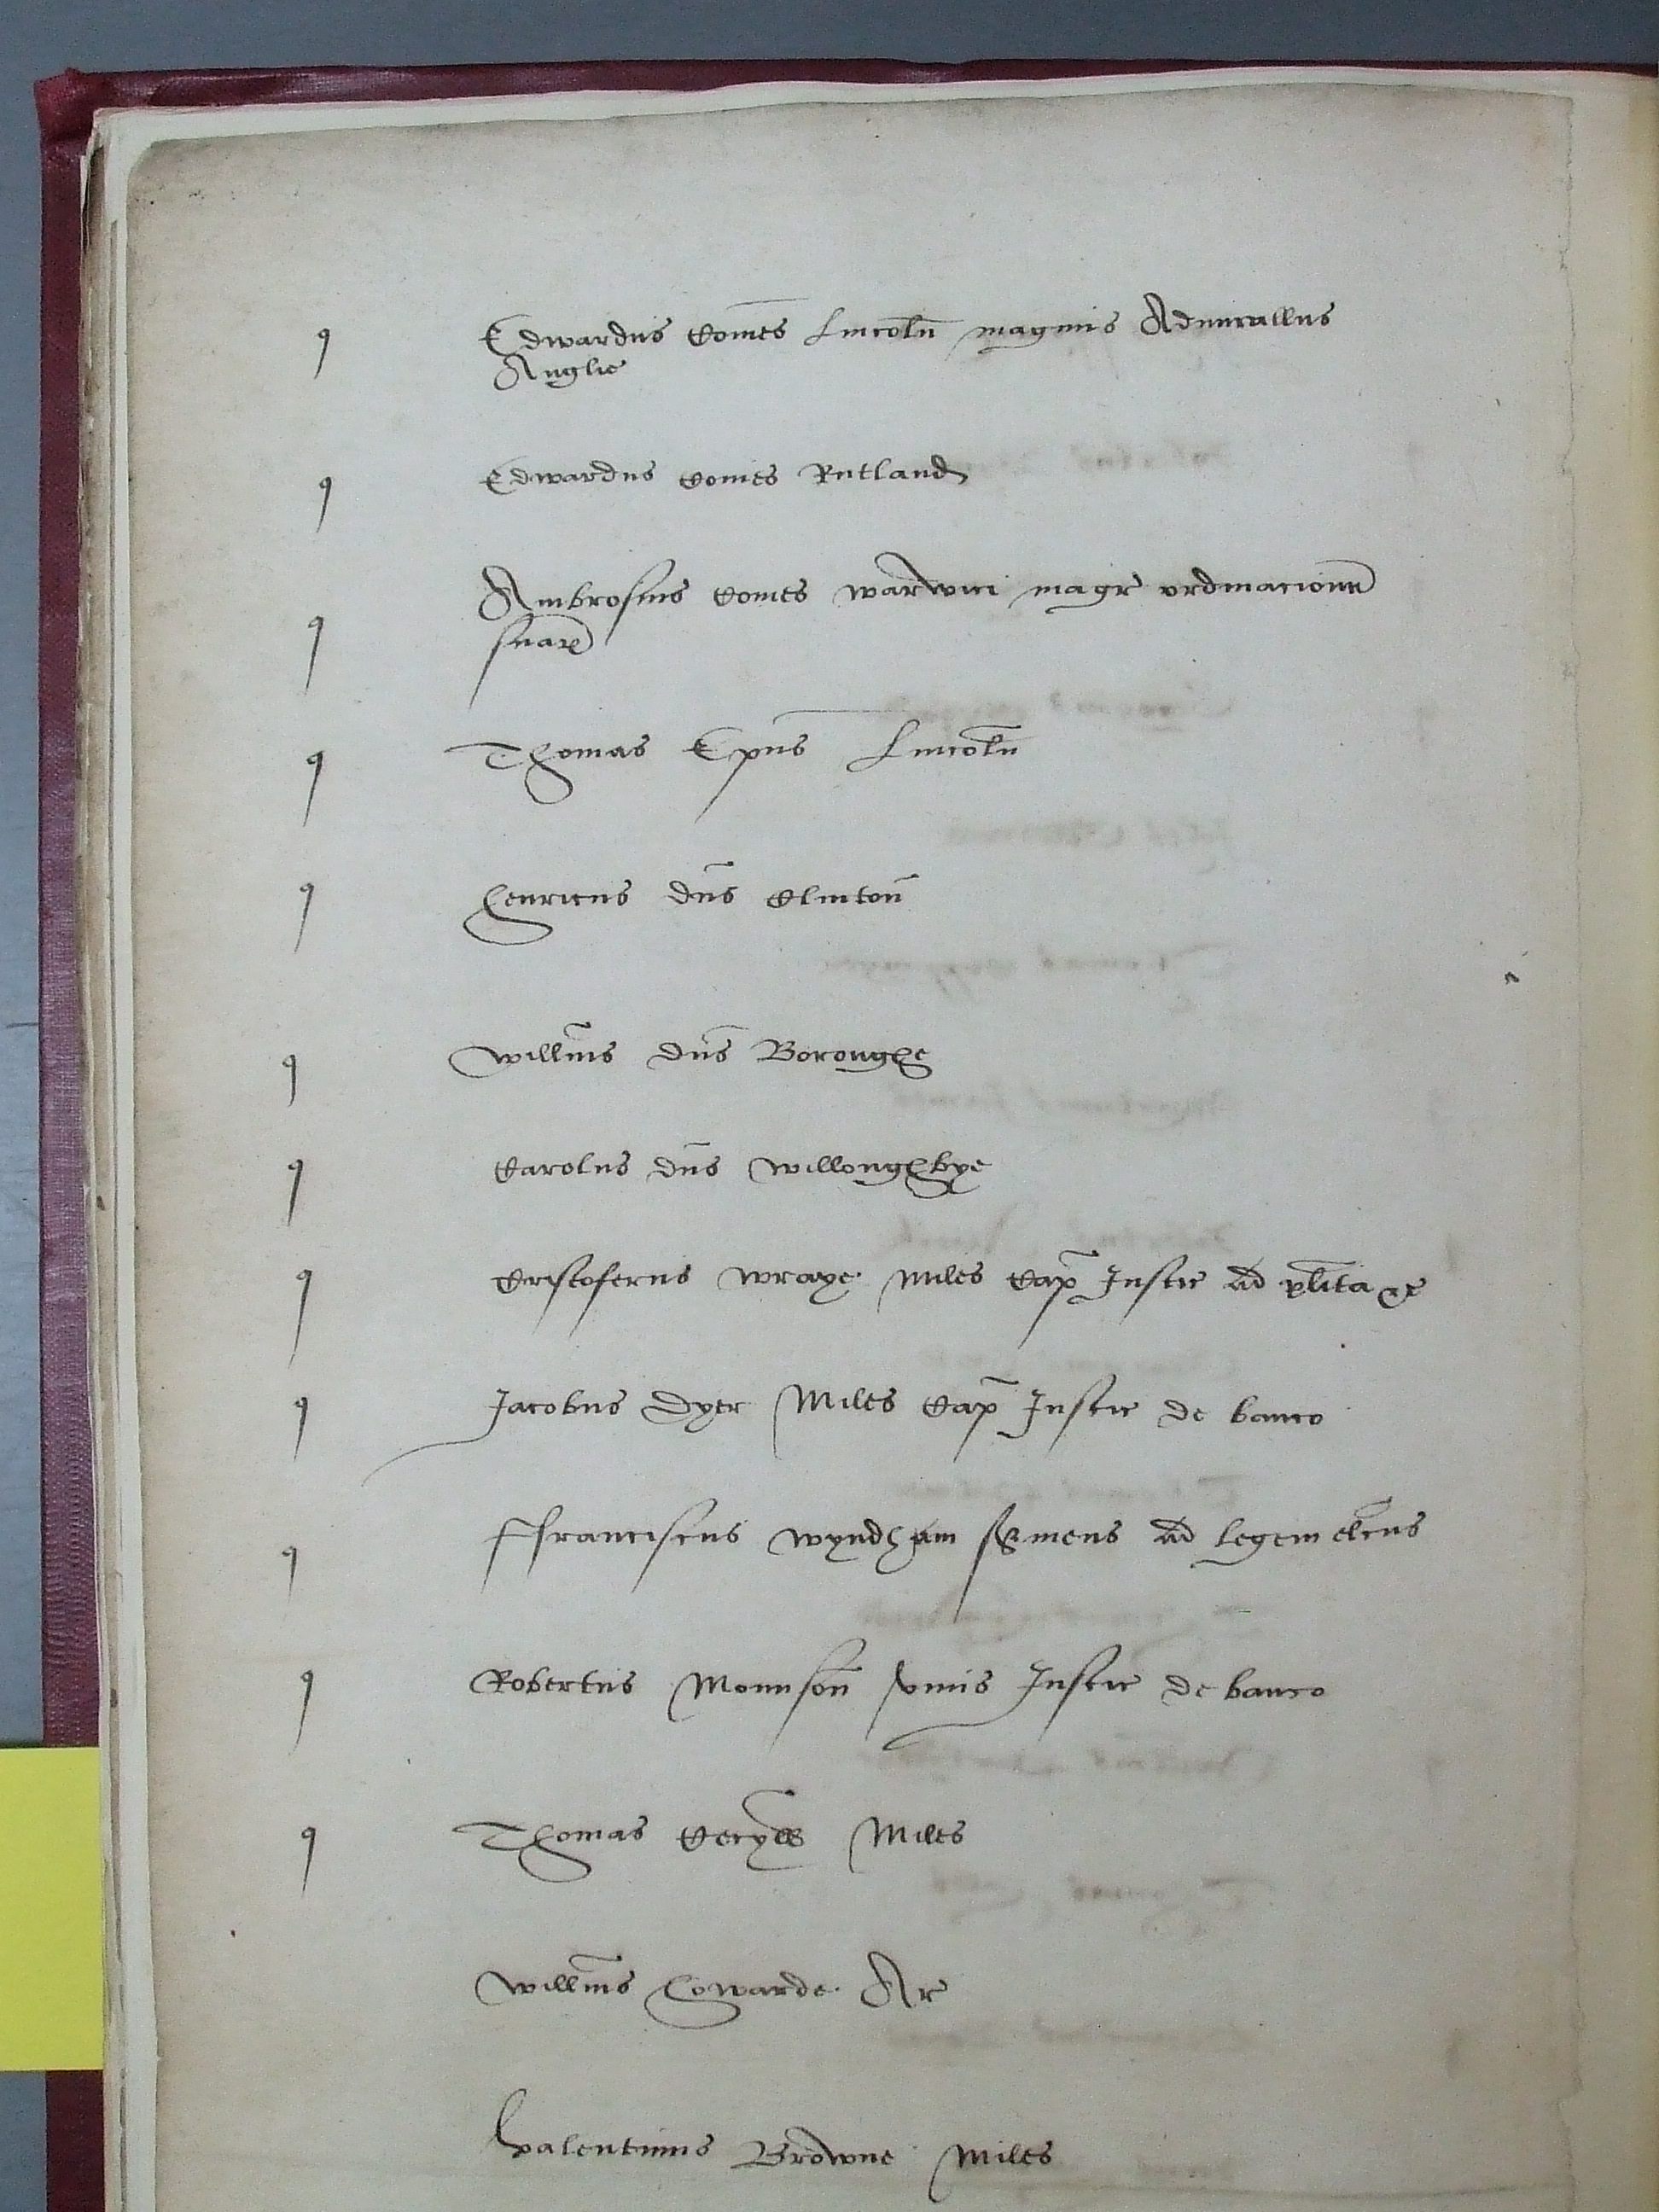 q Edwardus Comes Lincoln magnus Admirallus
Anglie
q Edwardus Comes Rutland
q Ambrosius Comes warwici magr ordinacionū
suar
q Thomas Ep̄us Lincoln̄
q henricus dn̄s Clinton̄
q willm̄s dn̄s Boroughe
q Carolus dn̄s willoughbye
q Cristoferus wraye Miles Cap̄ Justic ad pl̄ita &c
q Jacobus Dyer Miles Cap̄ Justic de banco
q ffranciscus wyndham s̄viens ad legem
q Robertus Mounson̄ vnus Justic de banco
q Thomas Cecyll Miles
willm̄s howarde Ar
valentinus Browne Miles